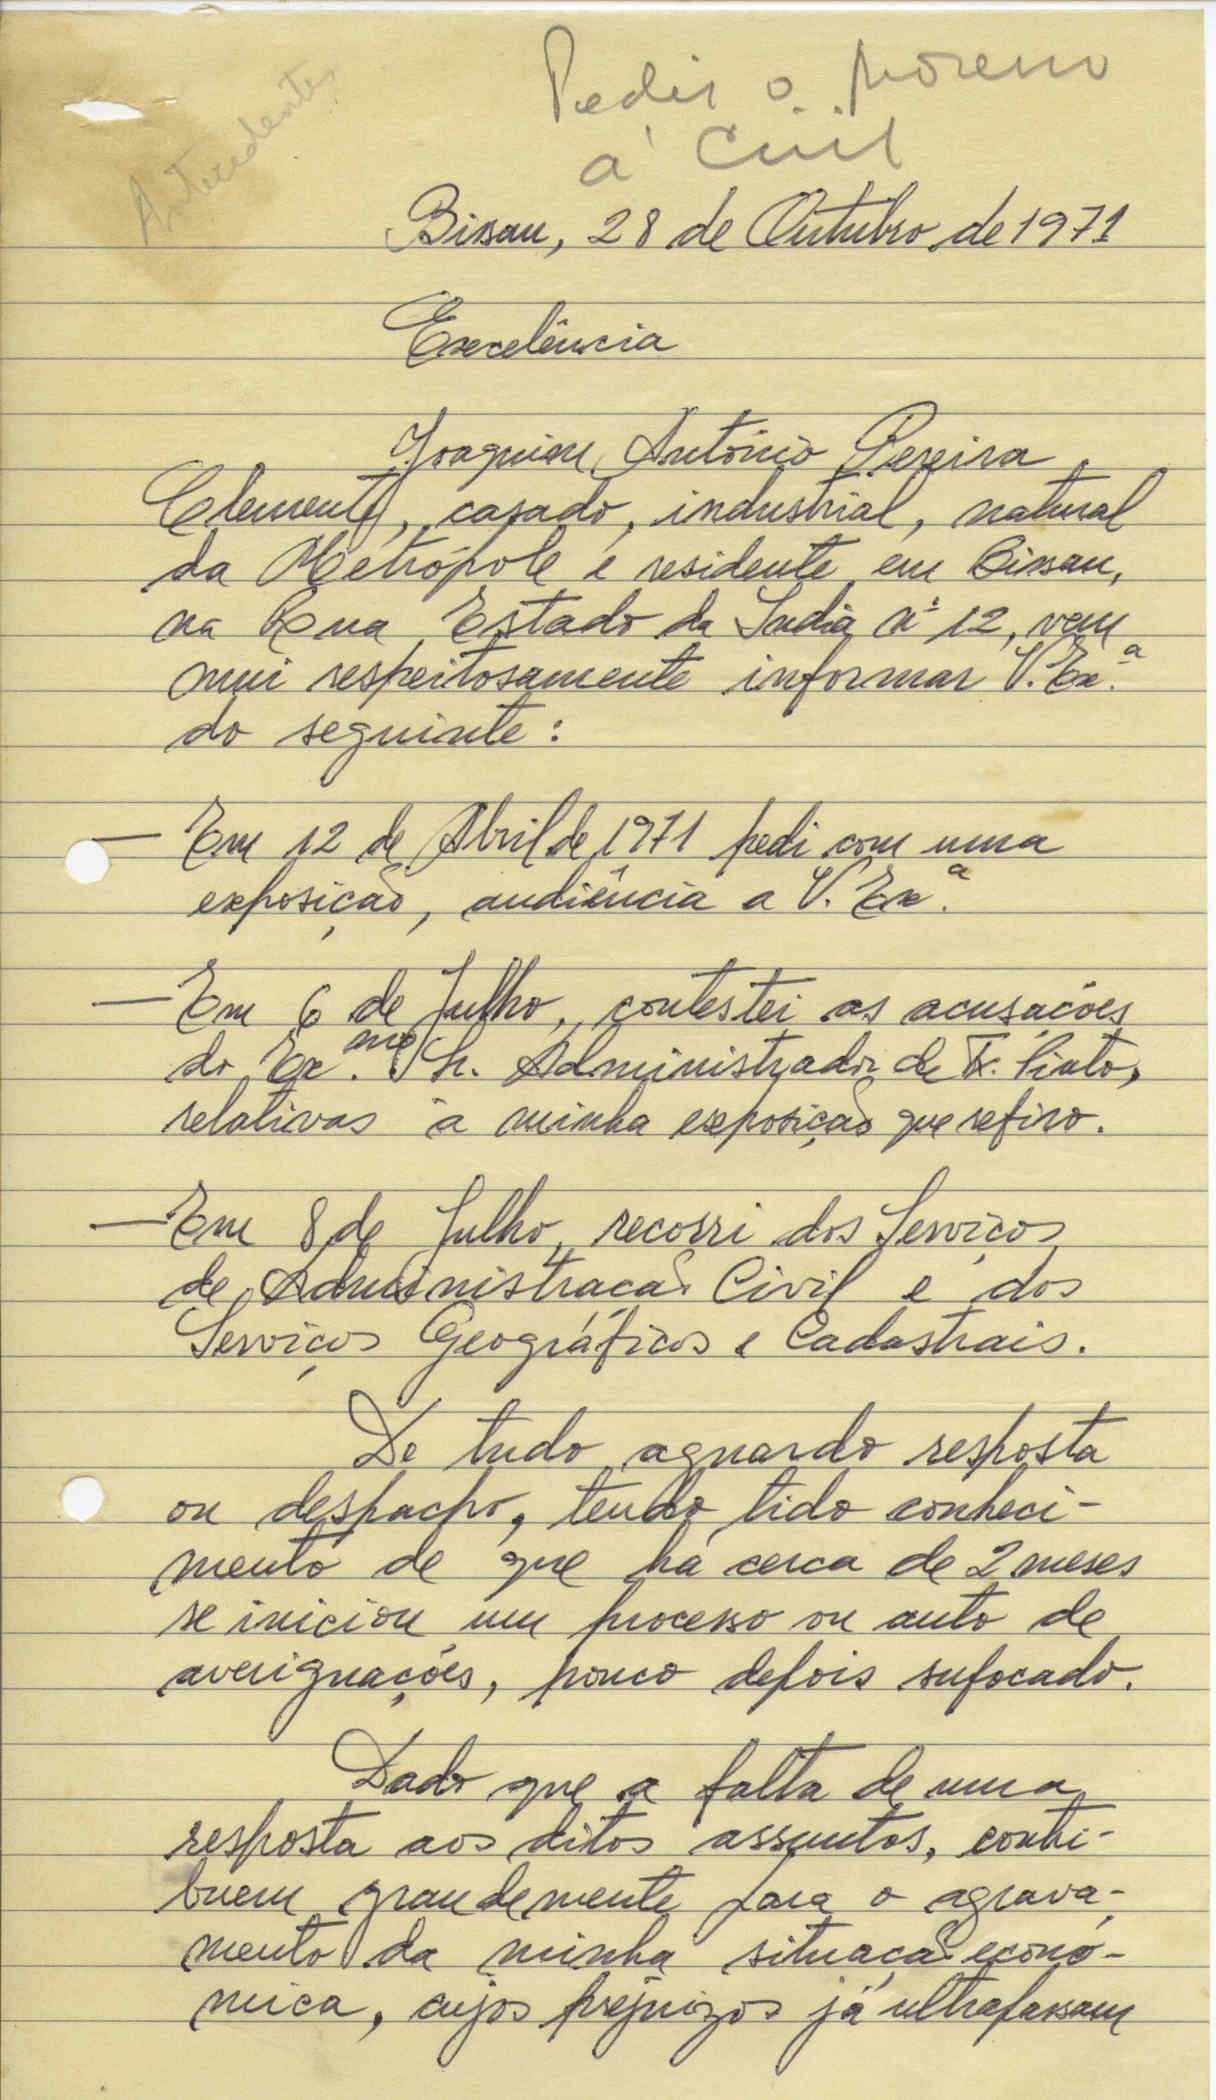 Antecedentes
Pedir o Moreno
à Civil
Bissau, 28 de Outubro de 1971
Excelência
Joaquim António Pereira
Clemente, casado, industrial, natural
da Metrópole e residente em Bissau,
na Rua Estado da India nº 12, vem
mui respeitosamente informar V. Exª.
do seguinte:
— Em 12 de Abril de 1971 pedi com uma
exposição, audiência a V. Exª.
— Em 6 de Julho, contestei as acusações
do Ex.mo Sr. Administrador de Tx. Pinto,
relativas à minha exposição que refiro.
— Em 8 de Julho, recorri dos Serviços
de Administração Civil e dos
Serviços Geográficos e Cadastrais.
De tudo aguardo resposta
ou despacho, tendo tido conheci-
mento de que há cerca de 2 meses
se iniciou um processo ou auto de
averiguações, pouco depois sufocado.
Dado que a falta de uma
resposta aos ditos assuntos, contri-
buem grandemente para o agrava-
mento da minha situação econó-
mica, cujos prejuizos já ultrapassam